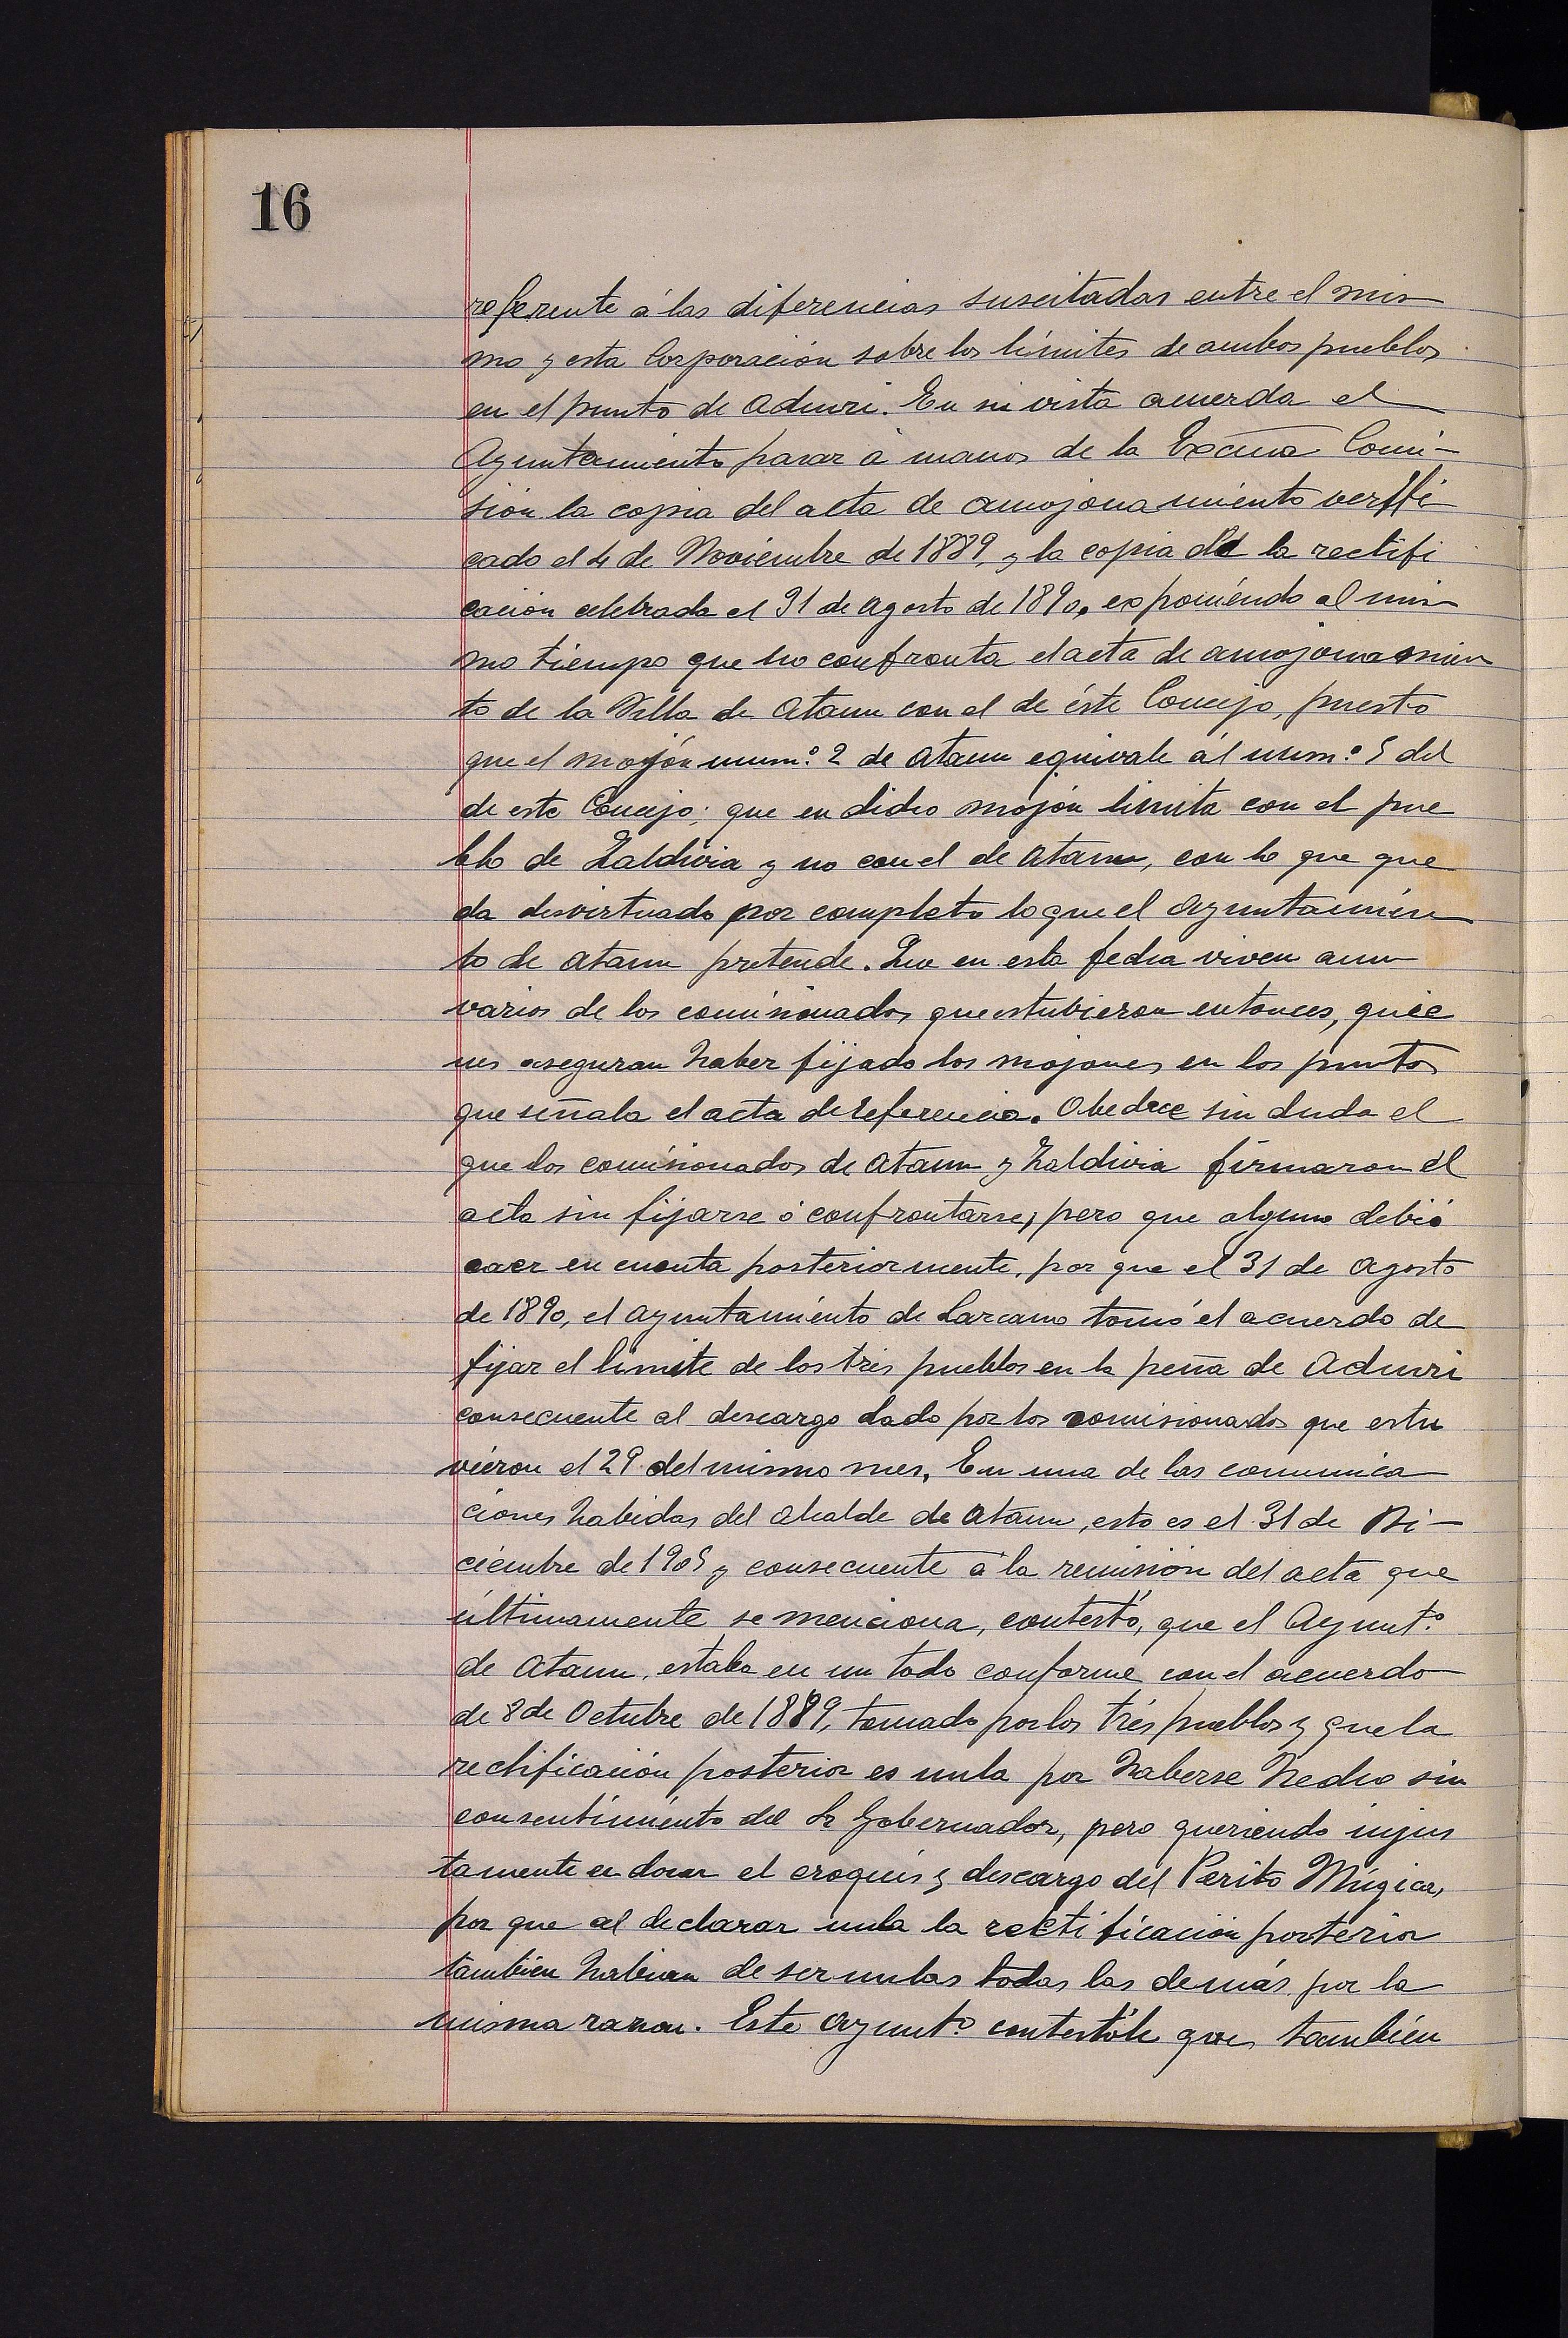 16
referente á las diferencias suscitadas entre el mis
mo y esta Corporación sobre los límites de ambos pueblos
en el punto de Aduuri. En su vista acuerda el
Ayuntamiento pasar á manos de la Excma Comi-
sión la copia del acta de amojonamiento verifi
cado el 4 de Noviembre de 1889, y la copia de la rectifi
cación celebrada el 31 de agosto de 1890, exponiéndo al mis
mo tiempo que no confronta el acta de amojonamien
to de la Villa de Ataun con el de éste Concejo, puesto
que el mojón num.º 2 de Ataun equivale ál num.º 5 del
de este Concejo; que en dicho mojón limita con el pue
blo de Zaldivia y no con el de Ataun, con lo que que
da desvirtuado por completo lo que el Ayuntamien
to de Ataun pretende. Que en esta fecha viven aun
varios de los comisionados que estubieron entonces, quie
nes aseguran haber fijado los mojones en los puntos
que señala el acta de referencia. Obedece sin duda el
que los comisionados de Ataun y Zaldivia firmaron él
acta sin fijarse ó confrontarse, pero que alguno debió
caer en cuenta posteriormente, por que el 31 de Agosto
de 1890, el ayuntamiento de Lazcano tomó el acuerdo de
fijar el limite de los tres pueblos en la peña de Aduuri
consecuente al descargo dado por los comisionados que estu
viéron el 29 del mismo mes. En una de las comunica
ciones habidas del alcalde de Ataun, esto es el 31 de Di-
ciembre de 1905 y consecuente á la remisión del acta que
últimamente se menciona, contestó, que el Ayunt.º
de Ataun, estaba en un todo conforme con el acuerdo
de 8 de Octubre de 1889, tomado por los trés pueblos y que la
rectificación posterior es nula por haberse hecho sin
consentimiento del Sr Gobernador, pero queriendo injus
tamente el croquis y descargo del Perito Múgica,
por que al declarar nula la rectificación posterior
tambien habian de ser nulas todas las demás por la
misma razon. Este Ayunt.º contestóle que también